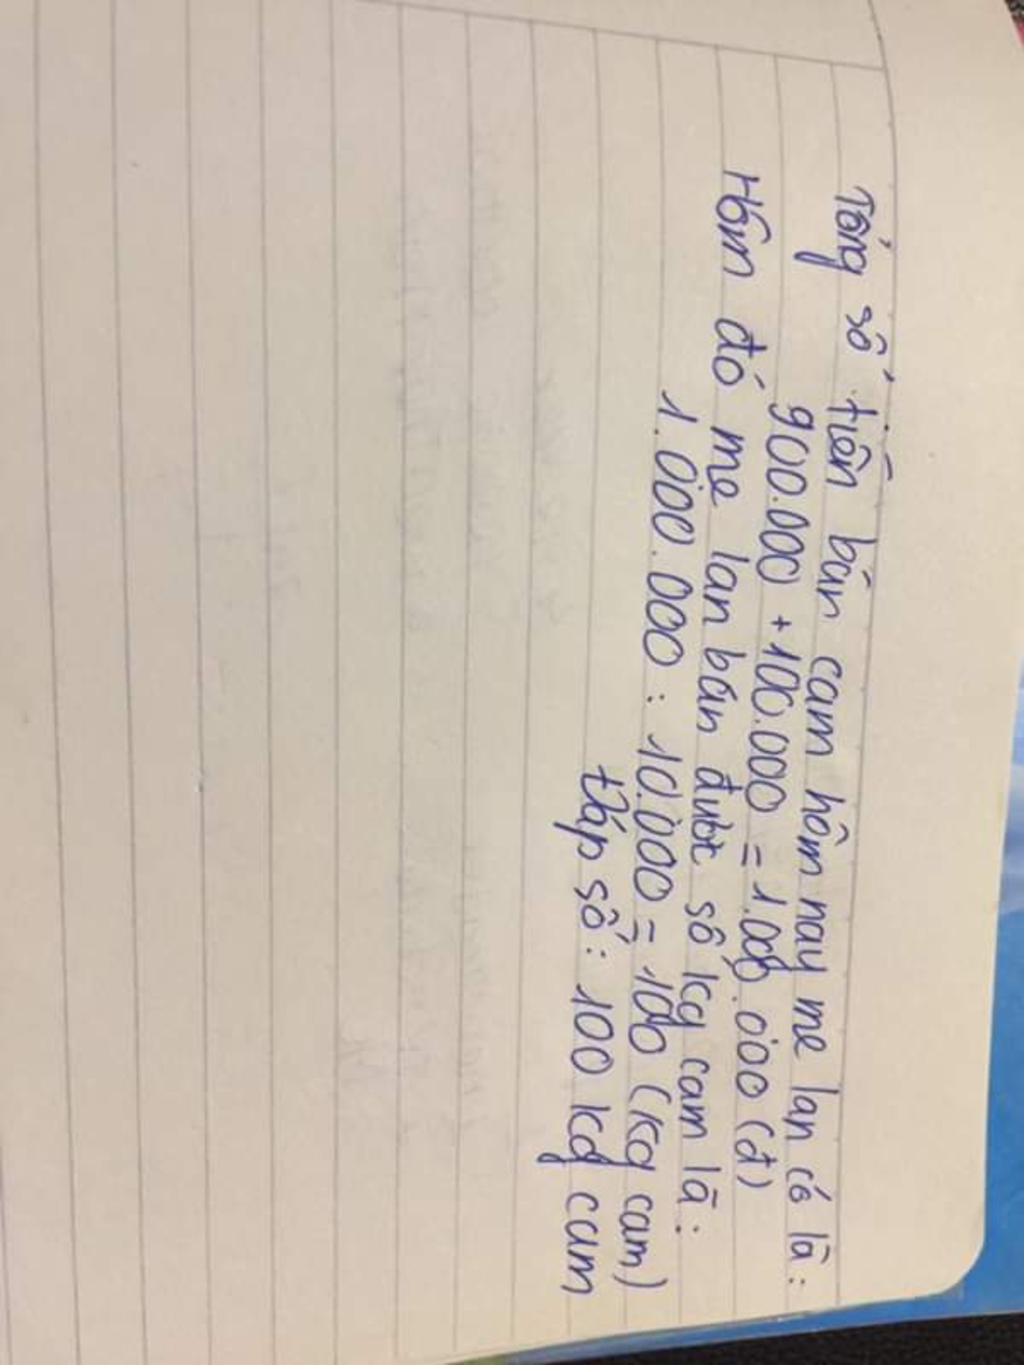 Tổng số tiền bán cam hôm nay mẹ lan có là:
900.000 + 100.000 = 1.000.000 (đ)
Hôm đó mẹ lan bán được số kg cam là:
1.000.000 : 10.000 = 100 (kg cam)
Đáp số: 100 kg cam